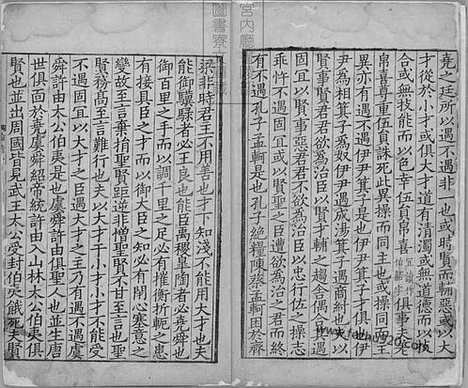 堯之廷所以遇不遇非一也或時賢而輔惡或以大
才從於小才或俱大才道有清濁或無道德而以技
合或無技能而以色幸伍員帛喜俱事夫差
帛喜尊重伍員誅死此異操而同主也或操同而主
異亦有遇不遇伊尹箕子是也伊尹箕子才俱也伊
尹為相箕子為奴伊尹遇成湯箕子遇商紂也夫以
賢事賢君君欲為治臣以賢才輔之趨舍偶合其遇固宜以
賢事惡君君不欲為治臣以忠行佐之操志
乖忤不遇固宜或以賢聖之臣遭欲為治之君而終
有不遇孔子孟軻是也孔子絕糧陳蔡孟軻困於齊
梁非時君主不用善也才下知淺不能用大才也夫
能御驥騄者必王良也能臣禹稷皋陶者必堯舜也
御百里之手而以調千里之足必有摧衡折軛之患
有接具臣之才而以御大臣之知必有閉心塞意之
變故至言棄捐聖賢距逆非憎聖賢不甘至言也聖
賢務高至言難行也夫以大才干小才小才不能受
不遇固宜以大才之臣遇大才之主乃有遇不遇虞
舜許由太公伯夷是也虞舜許由俱聖人也並生唐
世俱面於堯虞舜紹帝統許由入山林太公伯夷俱
賢也並出周國皆見武王太公受封伯夷餓死夫賢